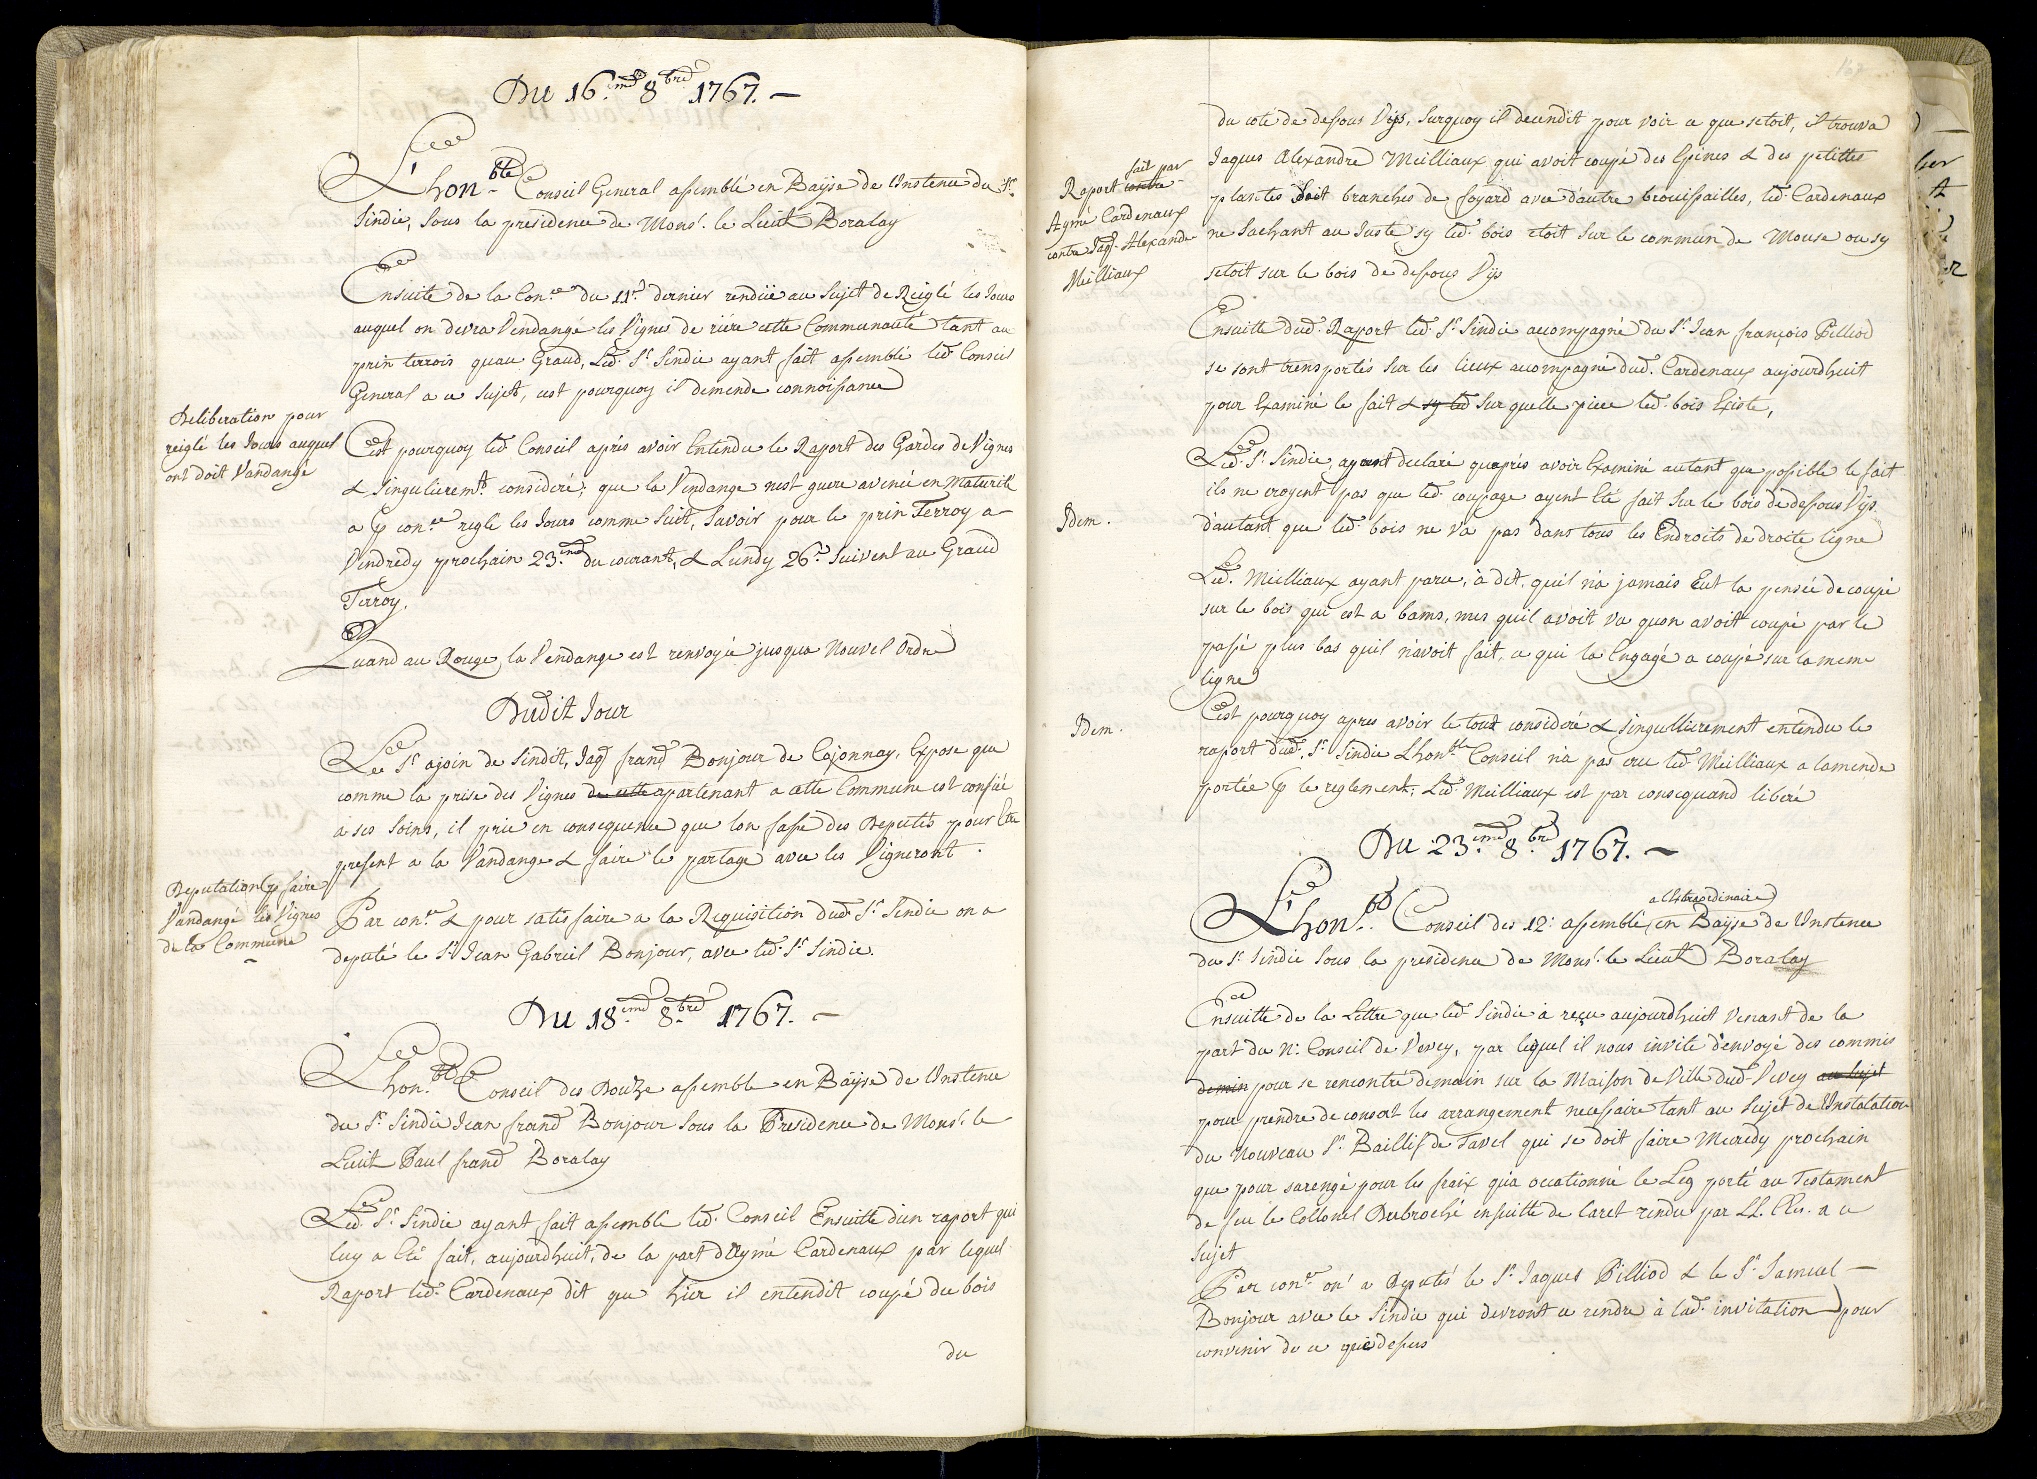 Du 16.me 8bre 1767. —
L'honble Conseil General assemblé en Baÿse de L'instence du Sr
Sindic, sous la presidence de Monsr. le Lieut Boralay
Ensuite de la Con.ce du 11e dernier rendüe au Sujet de Reiglé les Jours
auquel on devra Vendangé les Vignes de riére cette Communauté tant au
prin terrois quau Grand, Led. Sr Sindic ayant fait assemblé led Conseil
General a ce Sujet, cest pourquoy il demende connoissance
Deliberation pour
reiglé les Jours auquel
ont doit Vandangé
Cest pourquoy led. Conseil aprés avoir Entendu le Raport des Gardes de Vignes
& Singulierem.t consideré, que la Vendange nest guere avencé en Maturité
a p con.ce reglé les Jours comme Suit, Savoir pour le prin Terroy a
Vendredy prochain 23.me du courant, & Lundy 26.e Suivent au Grand
Terroy.
Quand au Rouge, la Vendange est renvoyé jusqua Nouvel Ordre
Dudit Jour
Le Sr ajoin de Sindit, Jaq frand Bonjour de Cojonnay, Expose que
comme la prise des Vignes de cette apartenant a cette Commune est confiée
a ses Soins, il prie en consequence que lon fasse des Deputés pour Etre
present a la Vandange & faire le partage avec les Vigneront.
Deputation p faire
Vandangé les Vignes
de la Commune
Par con.ce & pour satisfaire a la Requisition dud. Sr Sindic on a
deputé le Sr Jean Gabriel Bonjour, avec led. Sr Sindic.
Du 18.me 8.bre 1767. —
L'hon.ble Conseil des Douze assemblé en Baÿse de L'instence
du Sr Sindic Jean frand Bonjour Sous la Presidence de Monsr. le
Lieut Paul frand Boralay
Led. Sr Sindic ayant fait assemblé led. Conseil Ensuitte d'un raport qui
luy a Eté fait, aujourdhuit, de la part d'Aymé Cardenaux par lequel
Raport led. Cardenaux dit que hier il entendit coupé du bois
du
du coté de dessous Vÿs, surquoy il decendit pour voir ce que setoit, il trouva
Raport contre fait par
Aymé Cardenaux
contre Jaq. Alexandre
Meilliaux
Jaques Alexandre Meilliaux qui avoit coupé des Epines & des petittes
plantes Soit branches de foyard avec d'autre brouissailles, led. Cardenaux
ne Sachant au Juste sy led. bois étoit Sur le commun de Mouse ou sy
setoit sur le bois de dessous Vÿs
Ensuitte dud. Raport led. Sr Sindic accompagné du Sr Jean françois Pilliod
se sont trensportés Sur les lieux acompagné dud. Cardenaux aujourdhuit
pour Examiné le fait & sy led Sur quelle piece led. bois Existe,
Led. Sr Sindic, ayent declaré quaprés avoir Examiné autant que possible le fait
ils ne croyent pas que led. coupage ayent Eté fait Sur le bois de dessous Vÿs
Idem.
d'autant que led. bois ne va pas dans tous les Endroits de droite ligne
Led. Meilliaux ayant paru, à dit, quil n'a jamais Eut la pensée de coupé
sur le bois qui est a bams, mes quil avoit vu quon avoit coupé par le
passé plus bas quil n'avoit fait, ce qui la Engagé a coupé sur la meme
ligne
Idem.
Cest pourquoy apres avoir le tout consideré & singullierement entendu le
raport dud. Sr Sindic L'hon.ble Conseil n'a pas cru led. Meilliaux a lamende
portée p le reglement; Led. Meilliaux est par consequand liberé
Du 23.me 8.bre 1767. —
L'hon.ble Conseil des 12 assemblé a l'Extraordinaire en Baÿse de L'instence
du Sr Sindic Sous la presidence de Monsr. le Lieut Boralay
Ensuitte de la Lettre que led Sindic à reçu aujourdhuit Venant de la
part du N. Conseil de Vevey, par lequel il nous invite d'envoyé des commis
demin pour se rencontré demain sur la Maison de Ville dud Vevey au Sujet
pour prendre de consert les arrangement necessaire tant au Sujet de L'instalation
du Nouveau Sr Baillif de Tavel qui se doit faire Mecredy prochain
que pour sarengé pour les fraix qu'a occationné le Leg porté au Testament
de feu le Collonel Dubroché ensuitte de laret rendu par LL. EEs. a ce
Sujet
Par con.ce on a Deputés le Sr Jaques Pilliod & le Sr Samuel
Bonjour avec le Sindic qui devront ce rendre à lad. invitation pour
convenir de ce que dessus